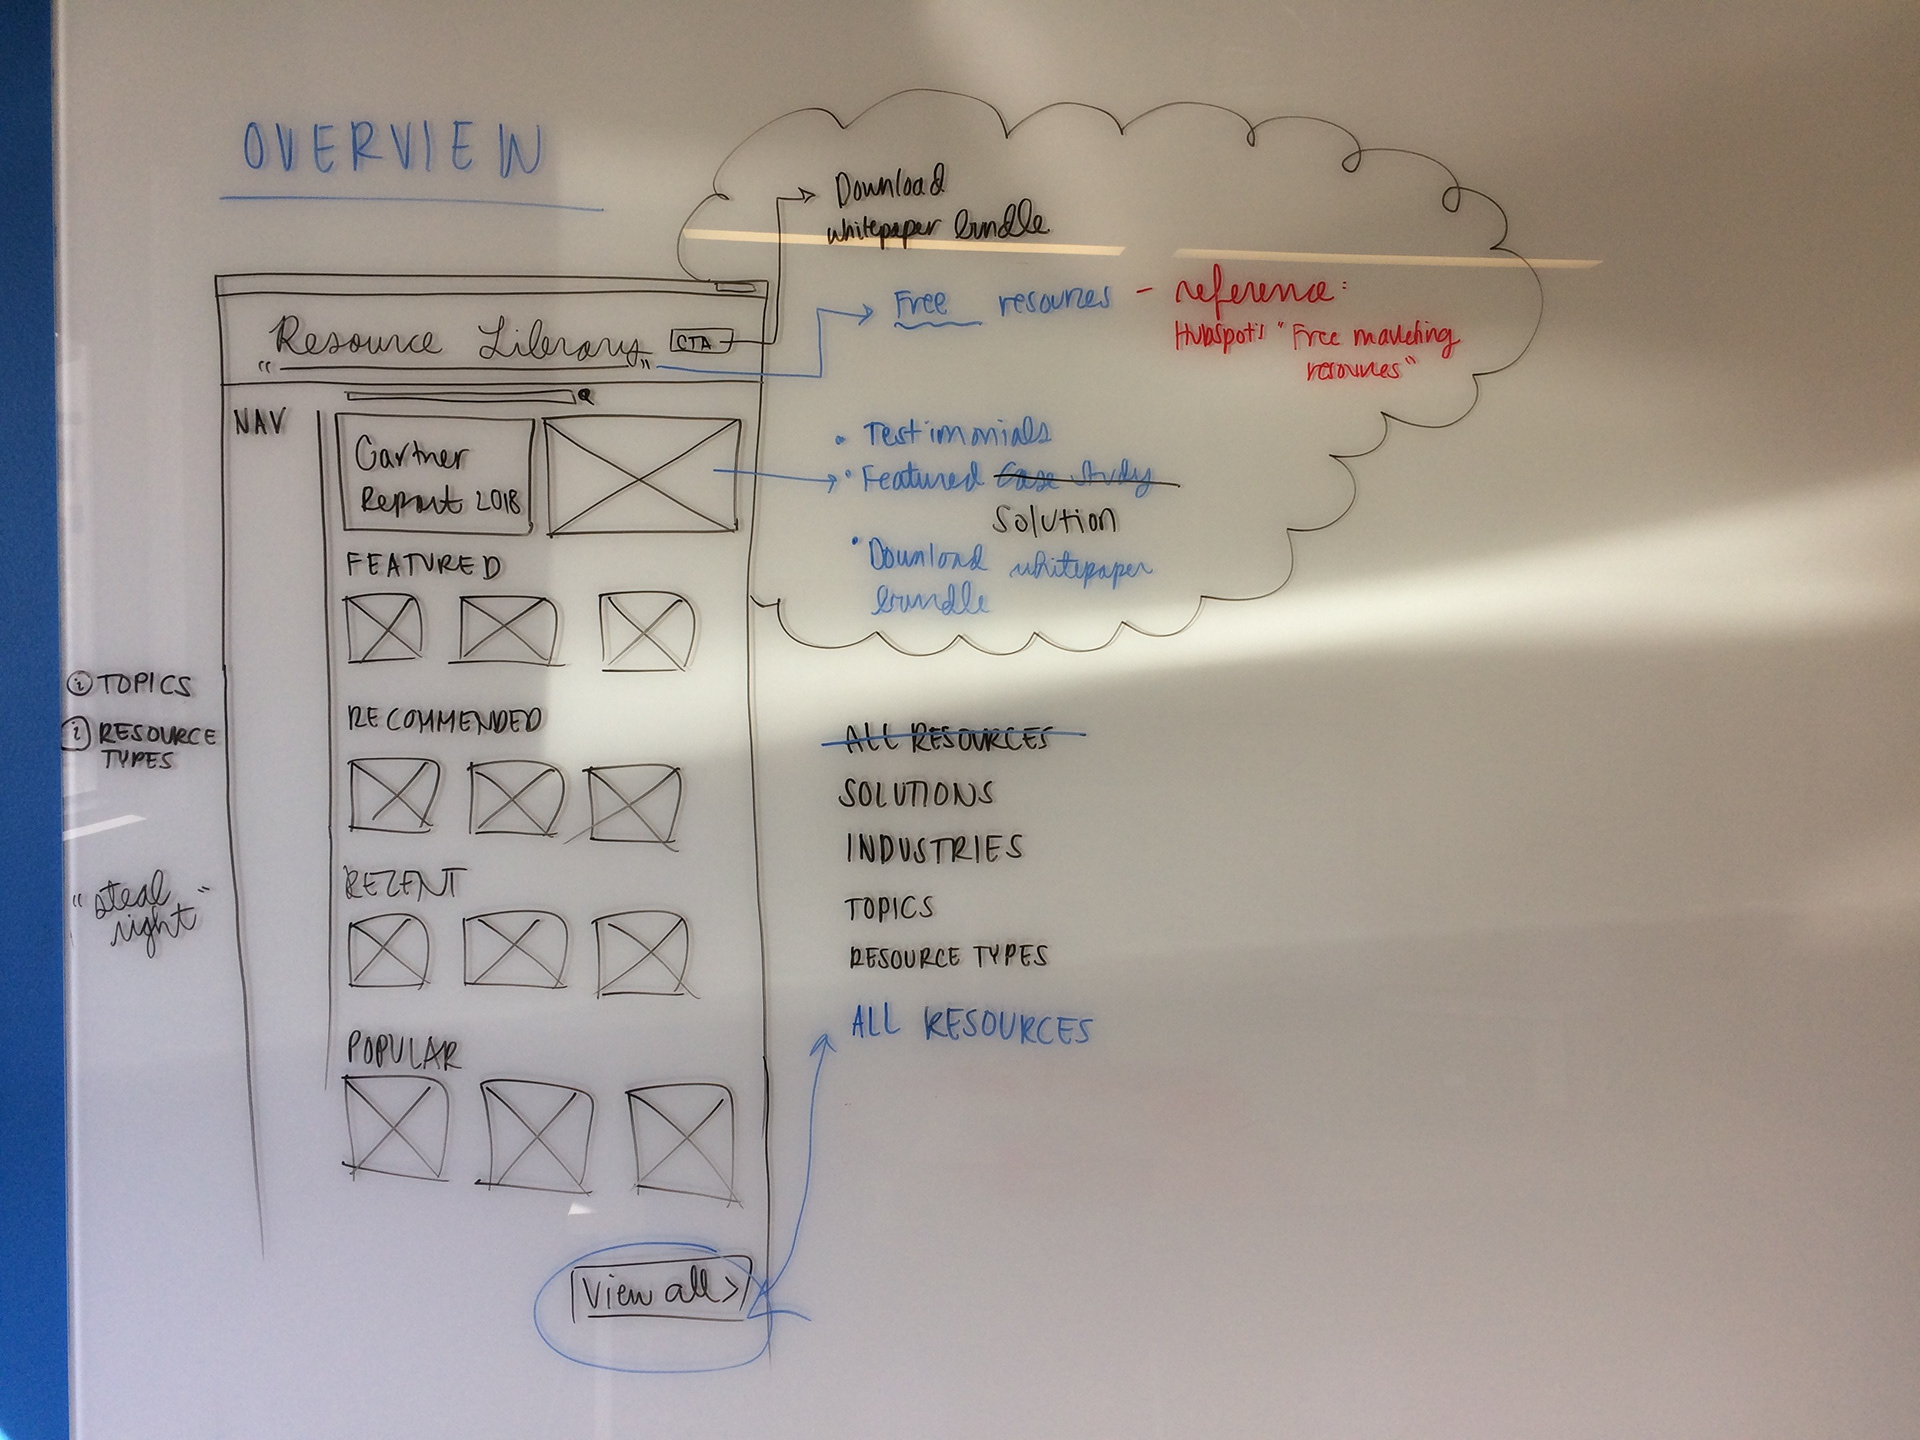 OVERVIEW
Download
whitepaper bundle
Free resources - reference:
Hubspot's "Free marketing
resources"
Resource Library
CTA
" "
NAV
Gartner
Report 2018
• Testimonials
• Featured Case Study
Solution
• Download whitepaper
bundle
FEATURED
RECOMMENDED
RECENT
POPULAR
View all >
i TOPICS
i RESOURCE
TYPES
"steal
right"
ALL RESOURCES
SOLUTIONS
INDUSTRIES
TOPICS
RESOURCE TYPES
ALL RESOURCES